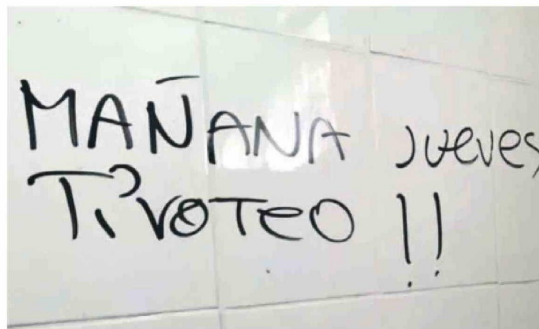 MAÑANA jueves
Ti?voTeo !!